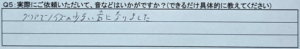 Q5 実際にご依頼いただいて、音などはいかがですか?(できるだけ具体的に教えてください)
クリアでノイズの少ない音になりました